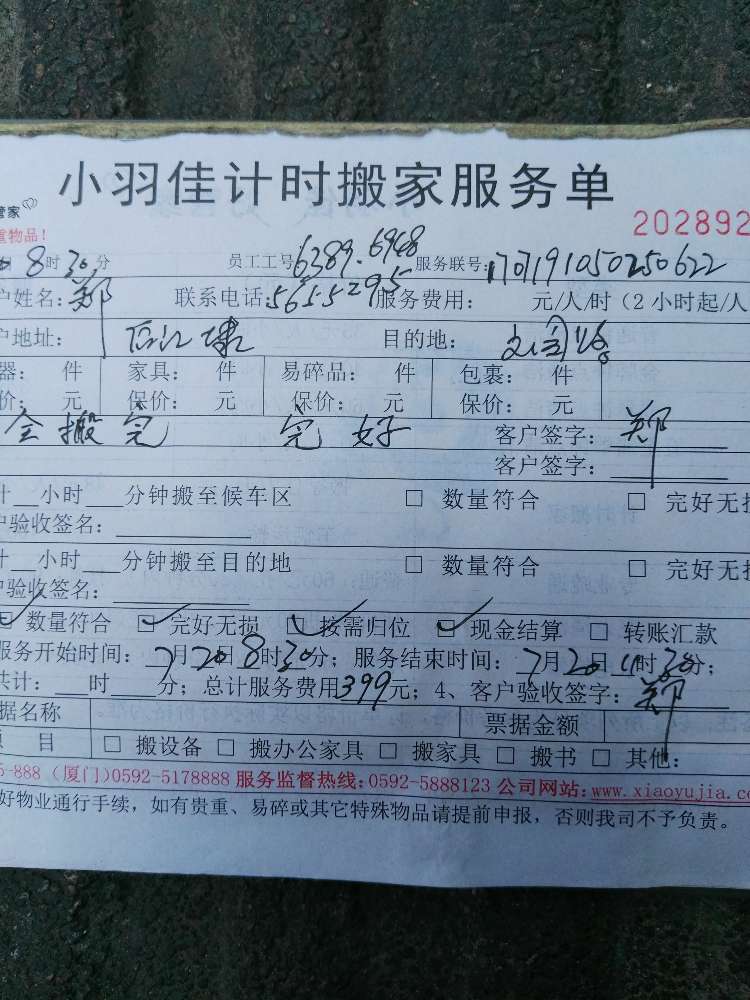 小羽佳计时搬家服务单
管家
重物品！
202892
8时30分 员工工号6389.6948 服务联号：170719105025062​2
户姓名：郑 联系电话：5655295 服务费用： 元/人/时（2小时起/人
户地址： 目的地：
器： 件 家具： 件 易碎品： 件 包裹： 件
价： 元 保价： 元 保价： 元 保价： 元
全搬完 完好 客户签字：郑
客户签字：
计__小时__分钟搬至候车区 □ 数量符合 □ 完好无损
户验收签名：
计__小时__分钟搬至目的地 □ 数量符合 □ 完好无损
户验收签名：
☑ 数量符合 ☑ 完好无损 ☑ 按需归位 ☑ 现金结算 □ 转账汇款
服务开始时间：7月20日8时30分；服务结束时间：7月20日11时30分；
共计：__时__分；总计服务费用399元；4、客户验收签字：郑
据名称 票据金额
项 目 □ 搬设备 □ 搬办公家具 □ 搬家具 □ 搬书 □ 其他：
5-888（厦门）0592-5178888 服务监督热线：0592-5888123 公司网站：www.xiaoyujia.co
好物业通行手续，如有贵重、易碎或其它特殊物品请提前申报，否则我司不予负责。